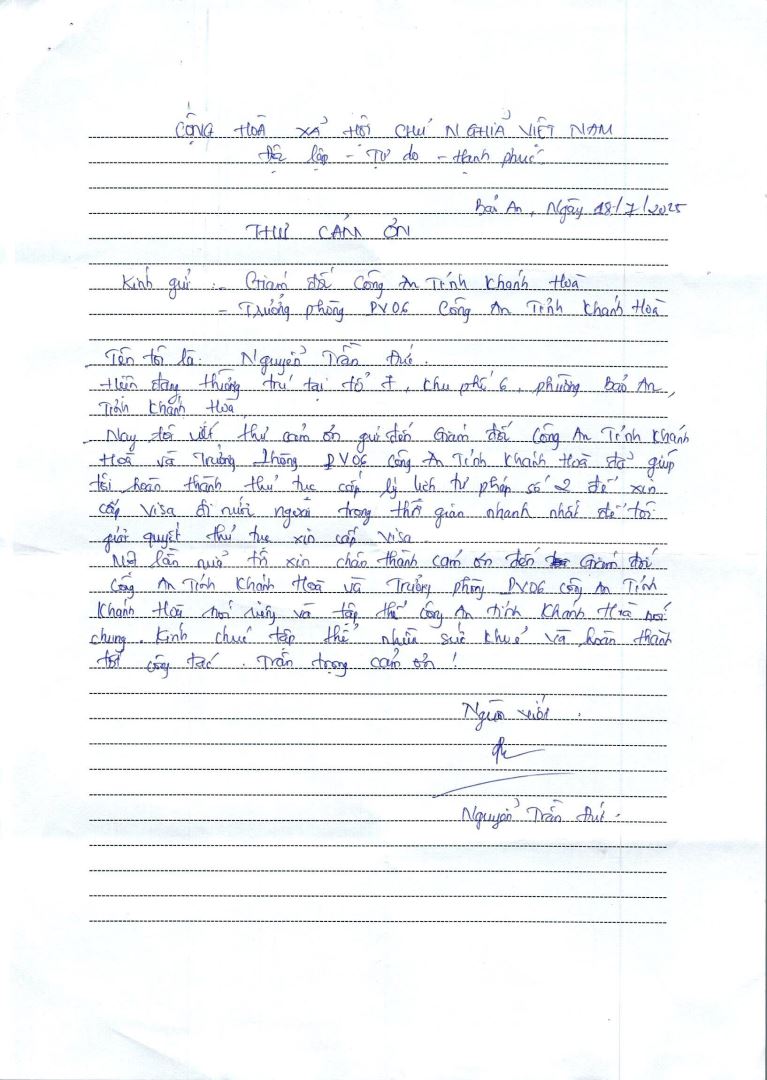 CỘNG HOÀ XÃ HỘI CHỦ NGHĨA VIỆT NAM
Độc lập - Tự do - Hạnh phúc
Bảo An, Ngày 18/7/2025
THƯ CẢM ƠN
Kính gửi :- Giám đốc Công An Tỉnh Khánh Hoà
- Trưởng phòng PV06 Công An Tỉnh Khánh Hoà
Tên tôi là: Nguyễn Trần Đức.
Hiện đang thường trú tại tổ 7, khu phố 6, phường Bảo An,
Tỉnh Khánh Hoà,
Nay tôi viết thư cảm ơn gửi đến Giám đốc Công An Tỉnh Khánh
Hoà và Trưởng Phòng PV06 Công An Tỉnh Khánh Hoà đã giúp
tôi hoàn thành thủ tục cấp lý lịch tư pháp số 2 để xin
cấp Visa đi nước ngoài trong thời gian nhanh nhất để tôi
giải quyết thủ tục xin cấp Visa.
Một lần nữa tôi xin chân thành cảm ơn đến Giám đốc
Công An Tỉnh Khánh Hoà và Trưởng phòng PV06 Công An Tỉnh
Khánh Hoà nói riêng và tập thể công An tỉnh Khánh Hoà nói
chung. Kính chúc tập thể nhiều sức khoẻ và hoàn thành
tốt công tác. Trân trọng cảm ơn !
Người viết.
Nguyễn Trần Đức.